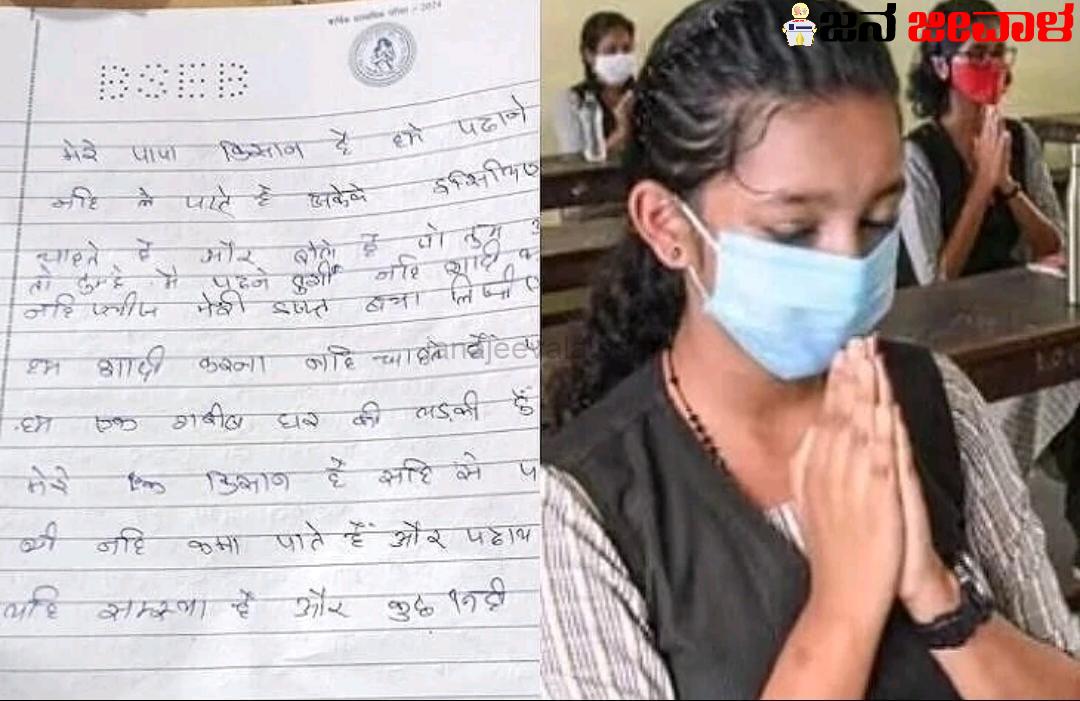 वार्षिक माध्यमिक परीक्षा - 2024
BSEB
मेरे पापा किसान है हमे पढाने
नहि ले पाते है
चाहते है और बोले है
तो तुम्हे मै पढने नहि शादी
नहि प्लीज मेरी इज्जत बचा लिजी
हम शादी करना नहि चाहते है
हम एक गरीब घर की लड़की हुँ
मेरे किसान है सहि से प
भी नहि कमा पाते हैं और पढाय
यहि समस्या है और कुछ नही
ಜನ ಜೀವಾಳ